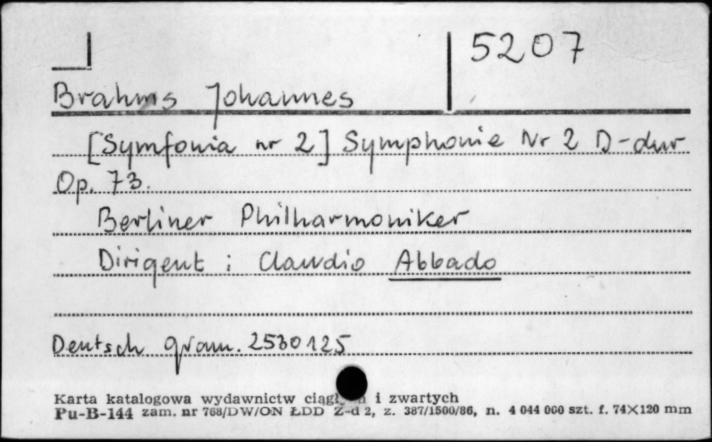 5207
Brahms Johannes
[Symfonia nr 2] Symphonie Nr 2 D-dur
Op. 73.
Berliner Philharmoniker
Dirigent : Claudio Abbado
Deutsch gram. 2530125
Karta katalogowa wydawnictw i zwartych
Pu-B-144 zam. nr 768/DW/ON ŁDD Z-d 2, z. 387/1500/86, n. 4 044 000 szt. f. 74×120 mm